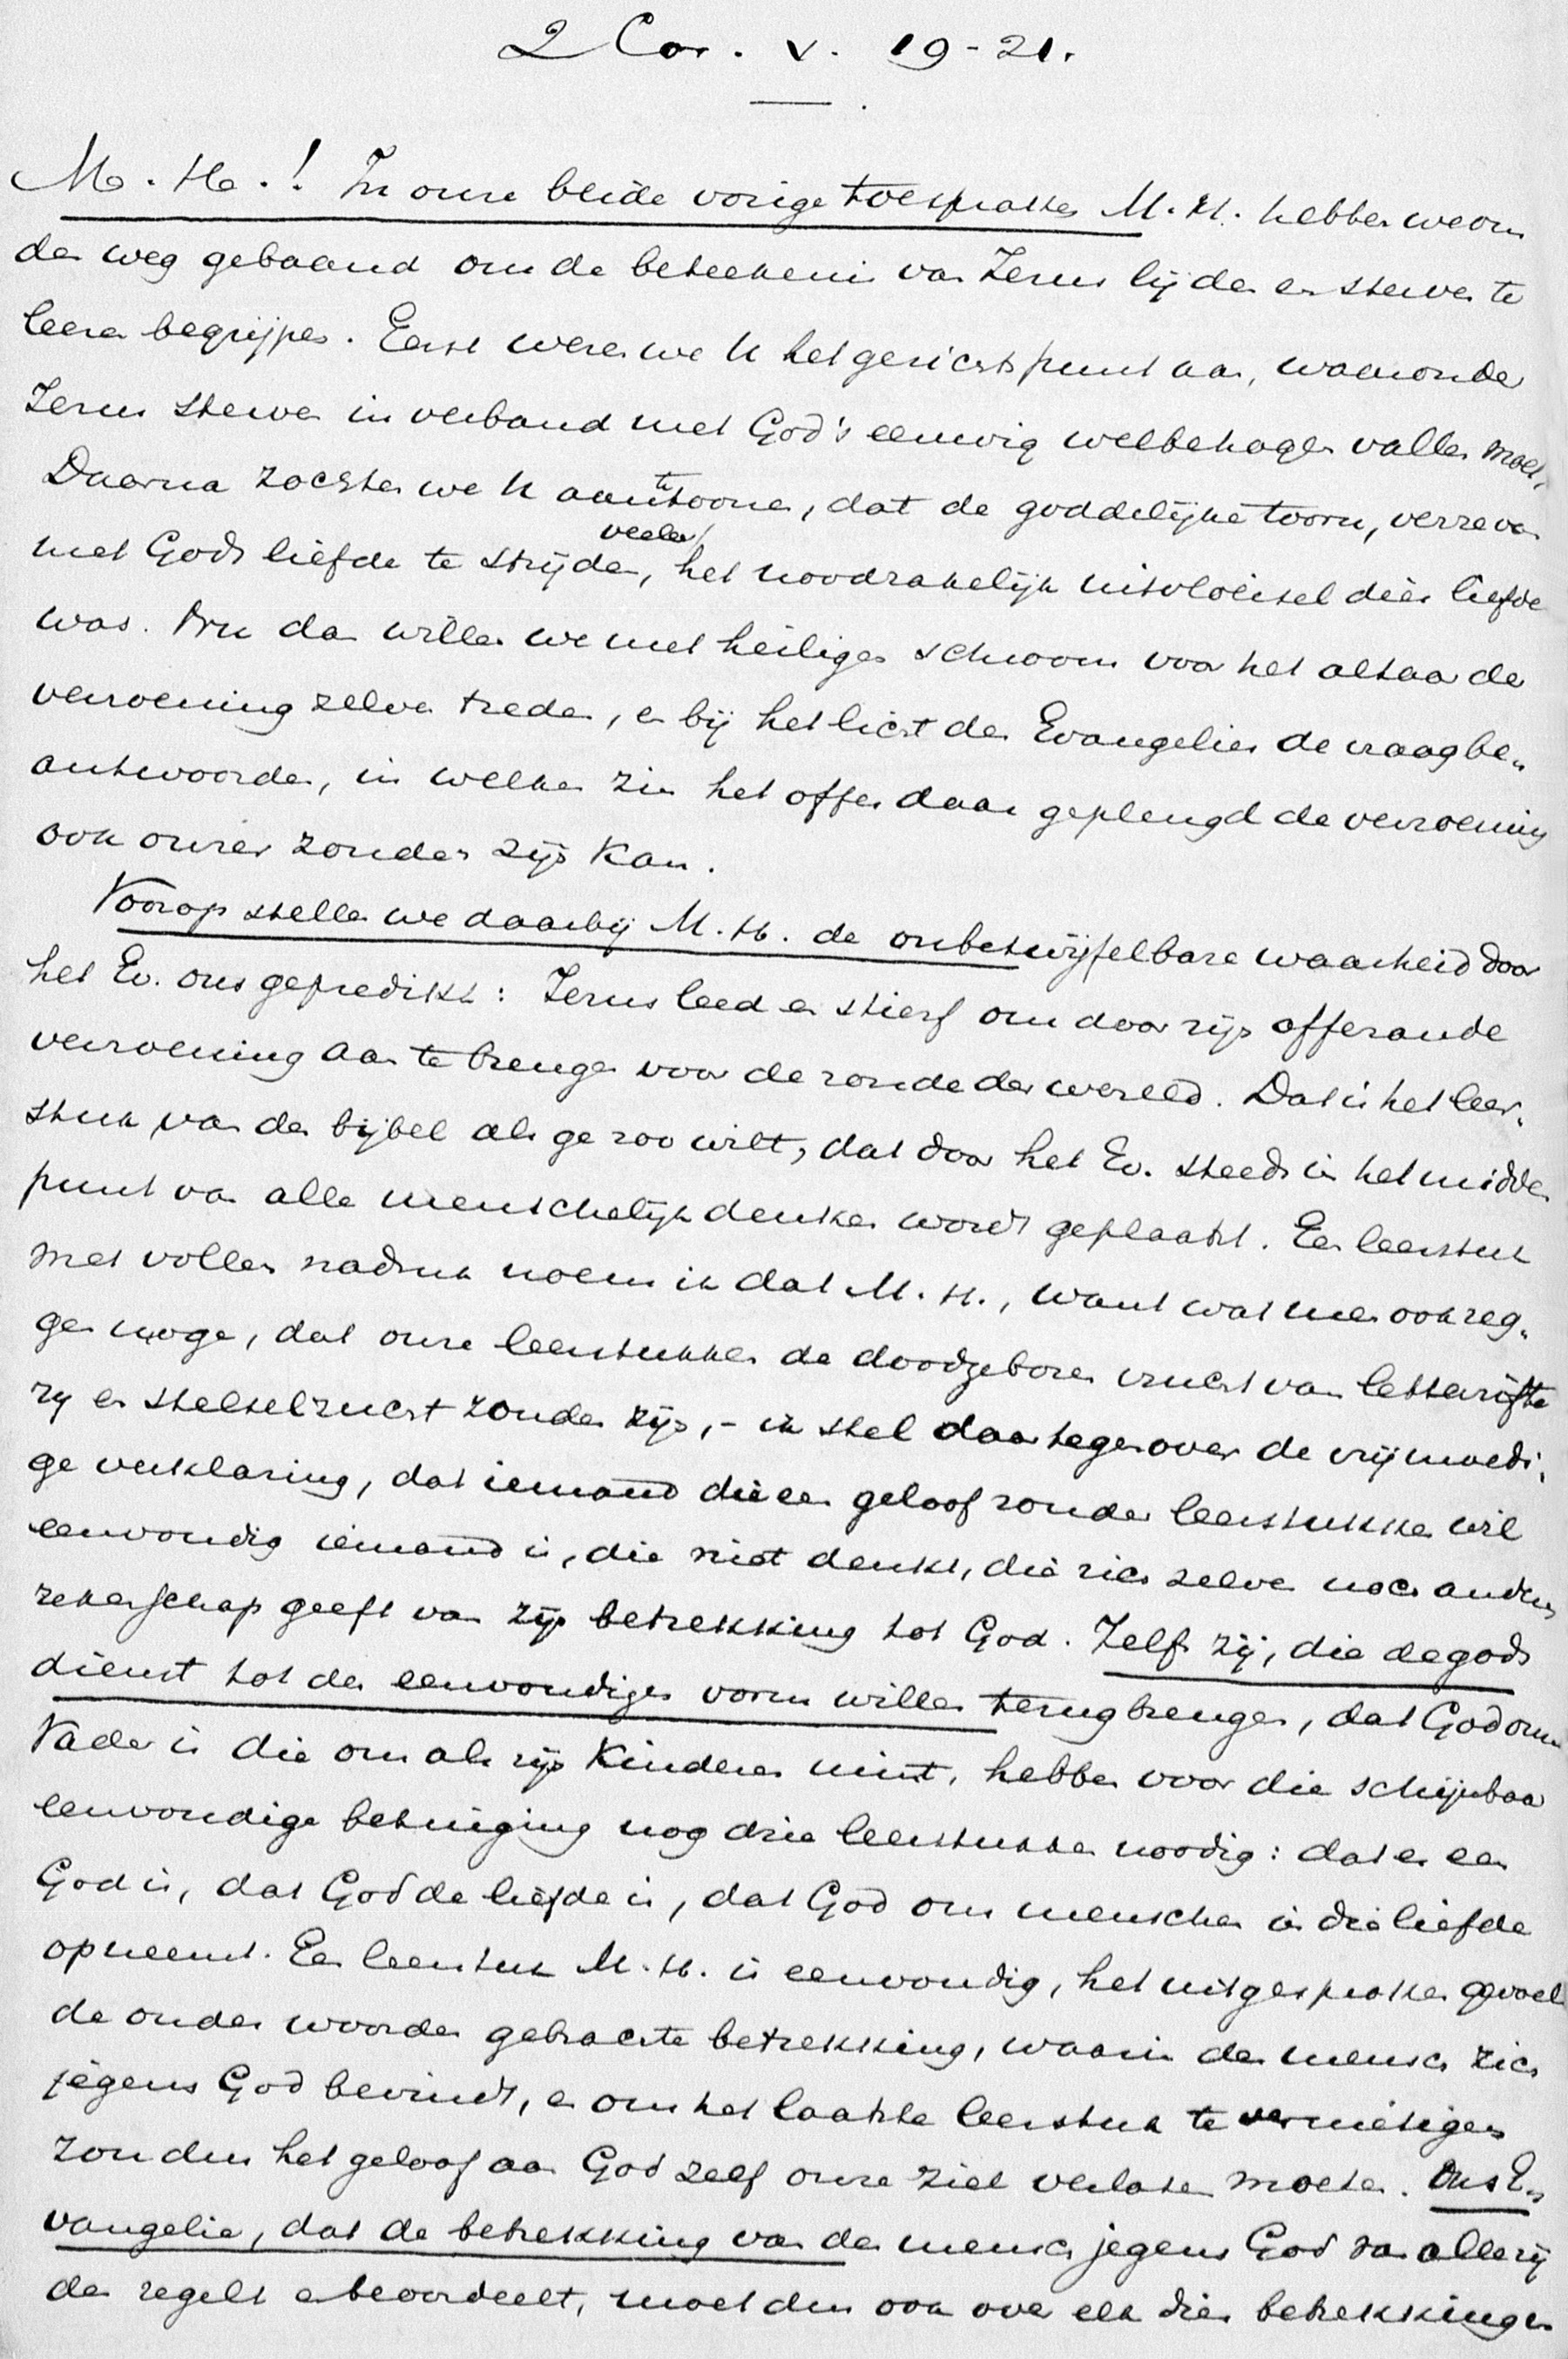 2 Cor. V. 19-21.
M. H.! In onze beide vorige toespraken M. H. hebben we ons
den weg gebaand om de beteekenis van Jezus lijden en sterven te
leeren begrijpen. Eerst wezen we U het gezichtspunt aan, waaronder
Jezus sterven in verband met God's eeuwig welbehagen vallen moet.
Daarna zochten we U aan te toonen, dat de goddelijke toorn, verre van
met Gods liefde te strijden, veeleer het noodzakelijk uitvloeisel dier liefde
was. Nu dan willen we met heiligen schroom voor het altaar der
verzoening zelve treden, en bij het licht der Evangeliën de vraag be-
antwoorden, in welken zin het offer daar geplengd de verzoening
ook onzer zonden zijn kan.
Voorop stellen we daarbij M. H. de onbetwijfelbare waarheid door
het Ev. ons gepredikt: Jezus leed en stierf om door zijn offerande
verzoening aan te brengen voor de zonde der wereld. Dat is het leer-
stuk van den bijbel als ge zoo wilt, dat door het Ev. steeds in het midden
punt van alle menschelijk denken wordt geplaatst. Een leerstuk
met vollen nadruk noem ik dat M. H., want wat men ook zeg-
gen moge, dat onze leerstukken de doodgeboren vrucht van letterzifte
rij en stelselzucht zouden zijn, - ik stel daartegenover de vrijmoedi-
ge verklaring, dat iemand die een geloof zonder leerstukken wil
eenvoudig iemand is, die niet denkt, die zich zelven noch anderen
rekenschap geeft van zijn betrekking tot God. Zelfs zij, die de gods
dienst tot den eenvoudigen vorm willen terugbrengen, dat God onze
Vader is die ons als zijn kinderen mint, hebben voor die schijnbaar
eenvoudige betuiging nog drie leerstukken noodig: dat er een
God is, dat God de liefde is, dat God ons menschen in die liefde
opneemt. Een leerstuk M. H. is eenvoudig, het uitgesproken gevoel
de onder woorden gebrachte betrekking, waarin de mensch zich
jegens God bevindt, en om het laatste leerstuk te vernietigen
zou dus het geloof aan God zelf onze ziel verlaten moeten. Ons E-
vangelie, dat de betrekking van den mensch jegens God van alle zij
den regelt en beoordeelt, moet dus ook over elk dier betrekkingen